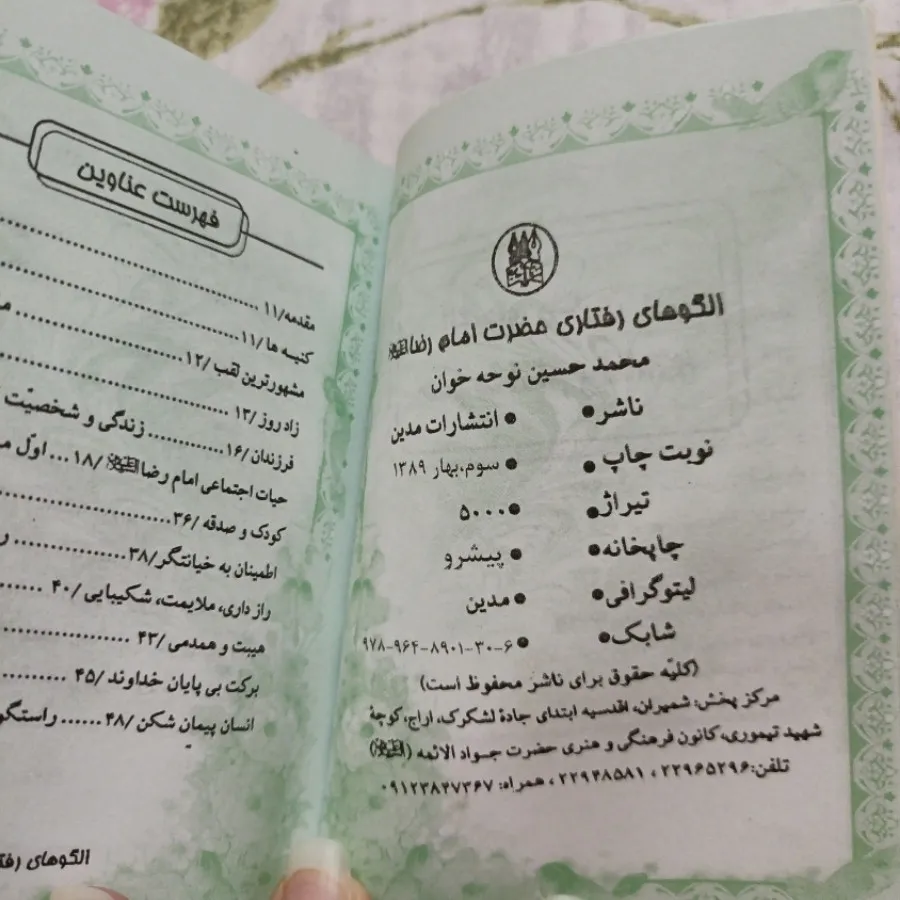 الگوهای رفتاری حضرت امام رضا
محمد حسین نوحه خوان
ناشر • انتشارات مدین
نوبت چاپ • سوم،بهار ۱۳۸۹
تیراژ • ۵۰۰۰
چاپخانه • پیشرو
لیتوگرافی • مدین
شابک • ۹۷۸-۹۶۴-۸۹۰۱-۳۰-۶
(کلیّه حقوق برای ناشر محفوظ است)
مرکز پخش: شمیران، اقدسیه ابتدای جادهٔ لشکرک، اراج، کوچهٔ
شهید تیموری، کانون فرهنگی و هنری حضرت جواد الائمه
تلفن: ۲۲۹۶۵۲۹۶ ، ۲۲۹۴۸۵۸۱ ، همراه: ۰۹۱۲۳۸۴۷۳۶۷
فهرست عناوین
مقدمه/۱۱
کنیه ها /۱۱
مشهورترین لقب /۱۲
زاد روز /۱۳
فرزندان /۱۶ ........... زندگی و شخصیّت
حیات اجتماعی امام رضا /۱۸... اوّل
کودک و صدقه /۳۶
اطمینان به خیانتگر/۳۸
راز داری، ملایمت، شکیبایی /۴۰
هیبت و همدمی /۴۳
برکت بی پایان خداوند /۴۵
انسان پیمان شکن /۴۸ ...... راستگو
الگوهای